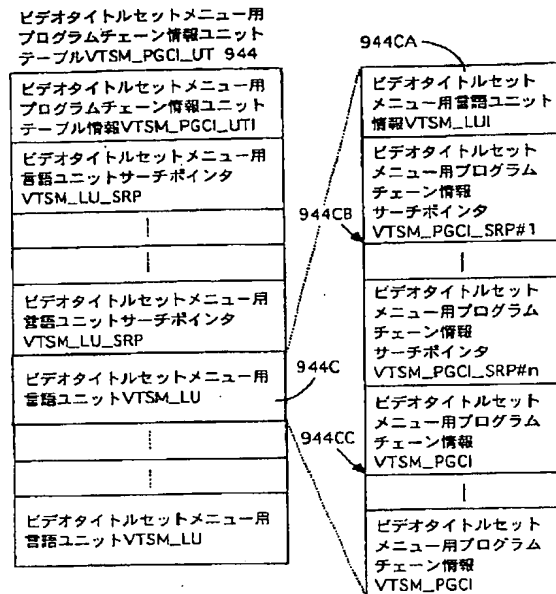 ビデオタイトルセットメニュー用
プログラムチェーン情報ユニット
テーブルVTSM_PGCI_UT 944
ビデオタイトルセットメニュー用
プログラムチェーン情報ユニット
テーブル情報VTSM_PGCI_UTI
ビデオタイトルセットメニュー用
言語ユニットサーチポインタ
VTSM_LU_SRP
ビデオタイトルセットメニュー用
言語ユニットサーチポインタ
VTSM_LU_SRP
ビデオタイトルセットメニュー用
言語ユニットVTSM_LU
ビデオタイトルセットメニュー用
言語ユニットVTSM_LU
944C
944CA
ビデオタイトルセット
メニュー用言語ユニット
情報VTSM_LUI
ビデオタイトルセット
メニュー用プログラム
チェーン情報
サーチポインタ
VTSM_PGCI_SRP#1
944CB
ビデオタイトルセット
メニュー用プログラム
チェーン情報
サーチポインタ
VTSM_PGCI_SRP#n
ビデオタイトルセット
メニュー用プログラム
チェーン情報
VTSM_PGCI
944CC
ビデオタイトルセット
メニュー用プログラム
チェーン情報
VTSM_PGCI